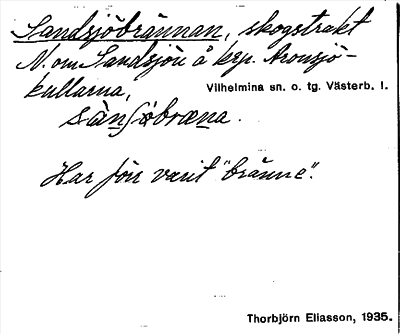 Sandsjöbrännan, skogstrakt
N. om Sandsjön å krp. Aronsjö-
kullarna, Vilhelmina sn. o. tg. Västerb. l.
sànsʝøbræ̀na.
Har förr varit "bränne".
Thorbjörn Eliasson, 1935.